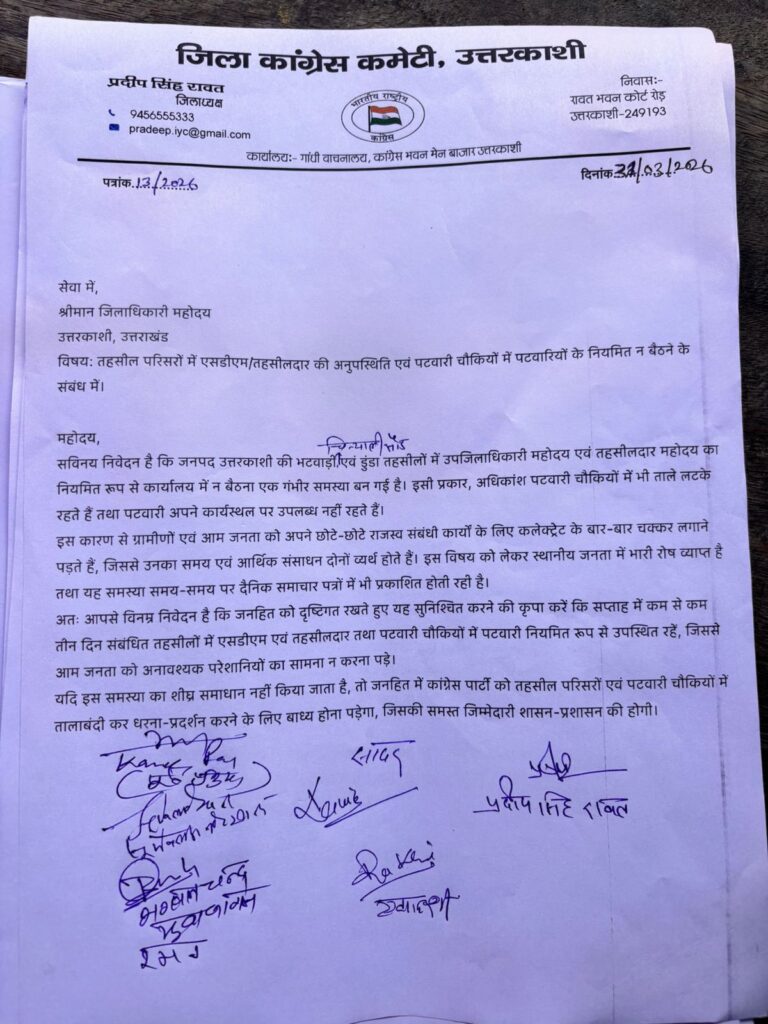 जिला कांग्रेस कमेटी, उत्तरकाशी
प्रदीप सिंह रावत
जिलाध्यक्ष
9456555333
pradeep.iyc@gmail.com
भारतीय राष्ट्रीय
कांग्रेस
निवास:-
रावत भवन कोर्ट रोड़
उत्तरकाशी-249193
कार्यालय:- गांधी वाचनालय, कांग्रेस भवन मेन बाजार उत्तरकाशी
पत्रांक.13/2026
दिनांक 31/03/2026
सेवा में,
श्रीमान जिलाधिकारी महोदय
उत्तरकाशी, उत्तराखंड
विषय: तहसील परिसरों में एसडीएम/तहसीलदार की अनुपस्थिति एवं पटवारी चौकियों में पटवारियों के नियमित न बैठने के
संबंध में।
महोदय,
चिन्यालीसौड़
सविनय निवेदन है कि जनपद उत्तरकाशी की भटवाड़ी एवं डुंडा तहसीलों में उपजिलाधिकारी महोदय एवं तहसीलदार महोदय का
नियमित रूप से कार्यालय में न बैठना एक गंभीर समस्या बन गई है। इसी प्रकार, अधिकांश पटवारी चौकियों में भी ताले लटके
रहते हैं तथा पटवारी अपने कार्यस्थल पर उपलब्ध नहीं रहते हैं।
इस कारण से ग्रामीणों एवं आम जनता को अपने छोटे-छोटे राजस्व संबंधी कार्यों के लिए कलेक्ट्रेट के बार-बार चक्कर लगाने
पड़ते हैं, जिससे उनका समय एवं आर्थिक संसाधन दोनों व्यर्थ होते हैं। इस विषय को लेकर स्थानीय जनता में भारी रोष व्याप्त है
तथा यह समस्या समय-समय पर दैनिक समाचार पत्रों में भी प्रकाशित होती रही है।
अतः आपसे विनम्र निवेदन है कि जनहित को दृष्टिगत रखते हुए यह सुनिश्चित करने की कृपा करें कि सप्ताह में कम से कम
तीन दिन संबंधित तहसीलों में एसडीएम एवं तहसीलदार तथा पटवारी चौकियों में पटवारी नियमित रूप से उपस्थित रहें, जिससे
आम जनता को अनावश्यक परेशानियों का सामना न करना पड़े।
यदि इस समस्या का शीघ्र समाधान नहीं किया जाता है, तो जनहित में कांग्रेस पार्टी को तहसील परिसरों एवं पटवारी चौकियों में
तालाबंदी कर धरना-प्रदर्शन करने के लिए बाध्य होना पड़ेगा, जिसकी समस्त जिम्मेदारी शासन-प्रशासन की होगी।
प्रदीप सिंह रावत